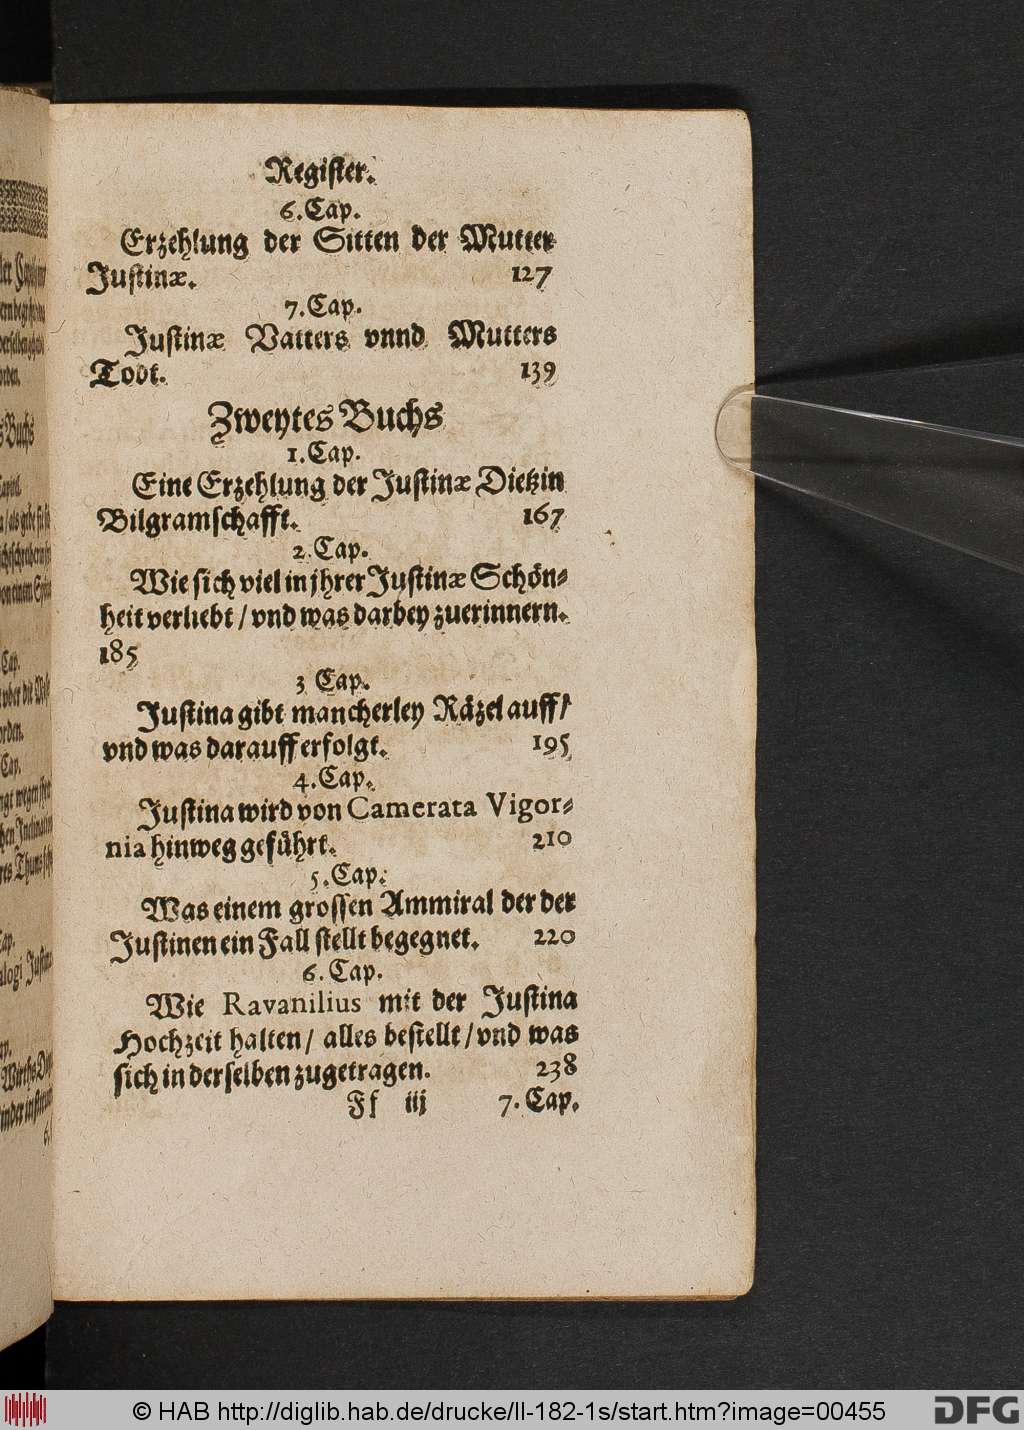 Register.
6. Cap.
Erzehlung der Sitten der Mutter
Justinæ. 127
7. Cap.
Justinæ Vatters vnnd Mutters
Todt. 139
Zweytes Buchs
1. Cap.
Eine Erzehlung der Justinæ Dietzin
Bilgramschafft. 167
2. Cap.
Wie sich viel in jhrer Justinæ Schön-
heit verliebt / vnd was darbey zuerinnern.
185
3 Cap.
Justina gibt mancherley Räzel auff /
vnd was darauff erfolgt. 195
4. Cap.
Justina wird von Camerata Vigor-
nia hinweg geführt. 210
5. Cap.
Was einem grossen Ammiral der der
Justinen ein Fall stellt begegnet. 220
6. Cap.
Wie Ravanilius mit der Justina
Hochzeit halten / alles bestellt / vnd was
sich in derselben zugetragen. 238
Ff iij 7. Cap.
© HAB http://diglib.hab.de/drucke/ll-182-1s/start.htm?image=00455
DFG